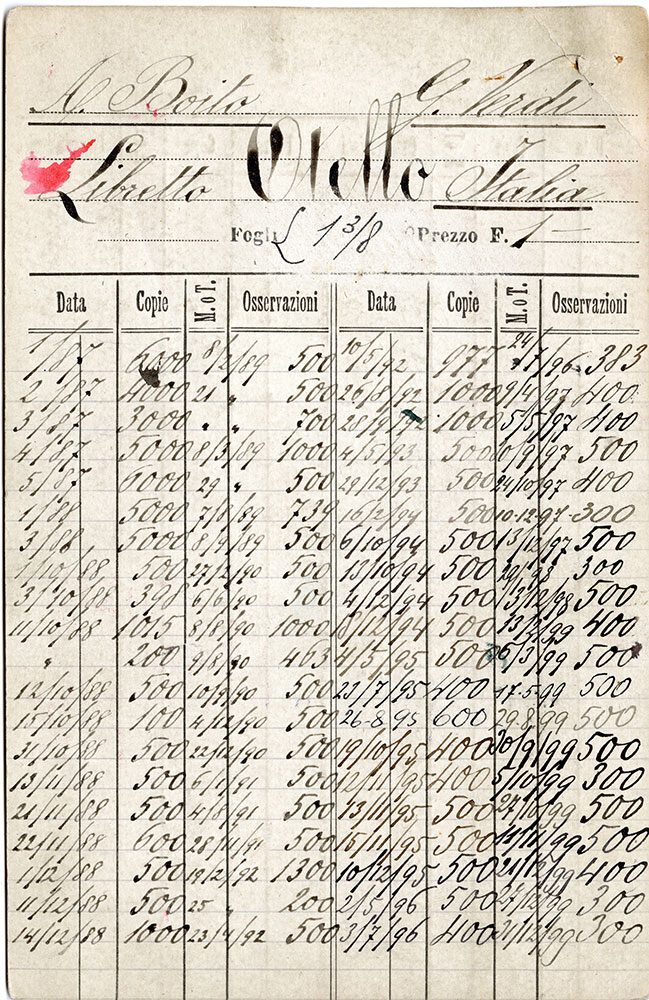 A. Boito G. Verdi
Libretto Otello Italia
Fogli L 1 3/8 Prezzo F. 1—
Data Copie M. o T. Osservazioni Data Copie M. o T. Osservazioni
1/87 6000 8/2/89 500 10/5/92 977 24/7/96 383
2/87 4000 21 " 500 26/8/92 1000 9/4/97 400
3/87 3000 " " 700 28/9/92 1000 5/5/97 400
4/87 5000 8/3/89 1000 4/5/93 500 6/9/97 500
5/87 6000 29 " 500 29/12/93 500 24/10/97 400
1/88 5000 7/8/89 739 16/2/94 500 10-12-97 300
3/88 5000 8/9/89 500 6/10/94 500 13/12/97 500
1/10/88 500 27/2/90 500 13/10/94 500 300
3/10/88 398 6/6/90 500 4/12/94 500 500
11/10/88 1015 8/8/90 1000 18/12/94 500 400
" 200 9/8/90 463 4/5/95 500 6/3/99 500
12/10/88 500 10/9/90 500 23/7/95 400 17-5-99 500
15/10/88 100 4/12/90 500 26-8-95 600 29-8-99 500
31/10/88 500 22/12/90 500 19/10/95 400 30/9/99 500
13/11/88 500 6/1/91 500 12/11/95 400 5/10/99 300
21/11/88 500 4/8/91 500 13/11/95 500 27/10/99 500
22/11/88 600 28/11/91 500 15/11/95 500 500
1/12/88 500 19/2/92 1300 10/12/95 500 21/12/99 400
11/12/88 500 25 " 200 2/5/96 500 27/12/99 300
14/12/88 1000 23/4/92 500 3/7/96 400 31/12/99 300